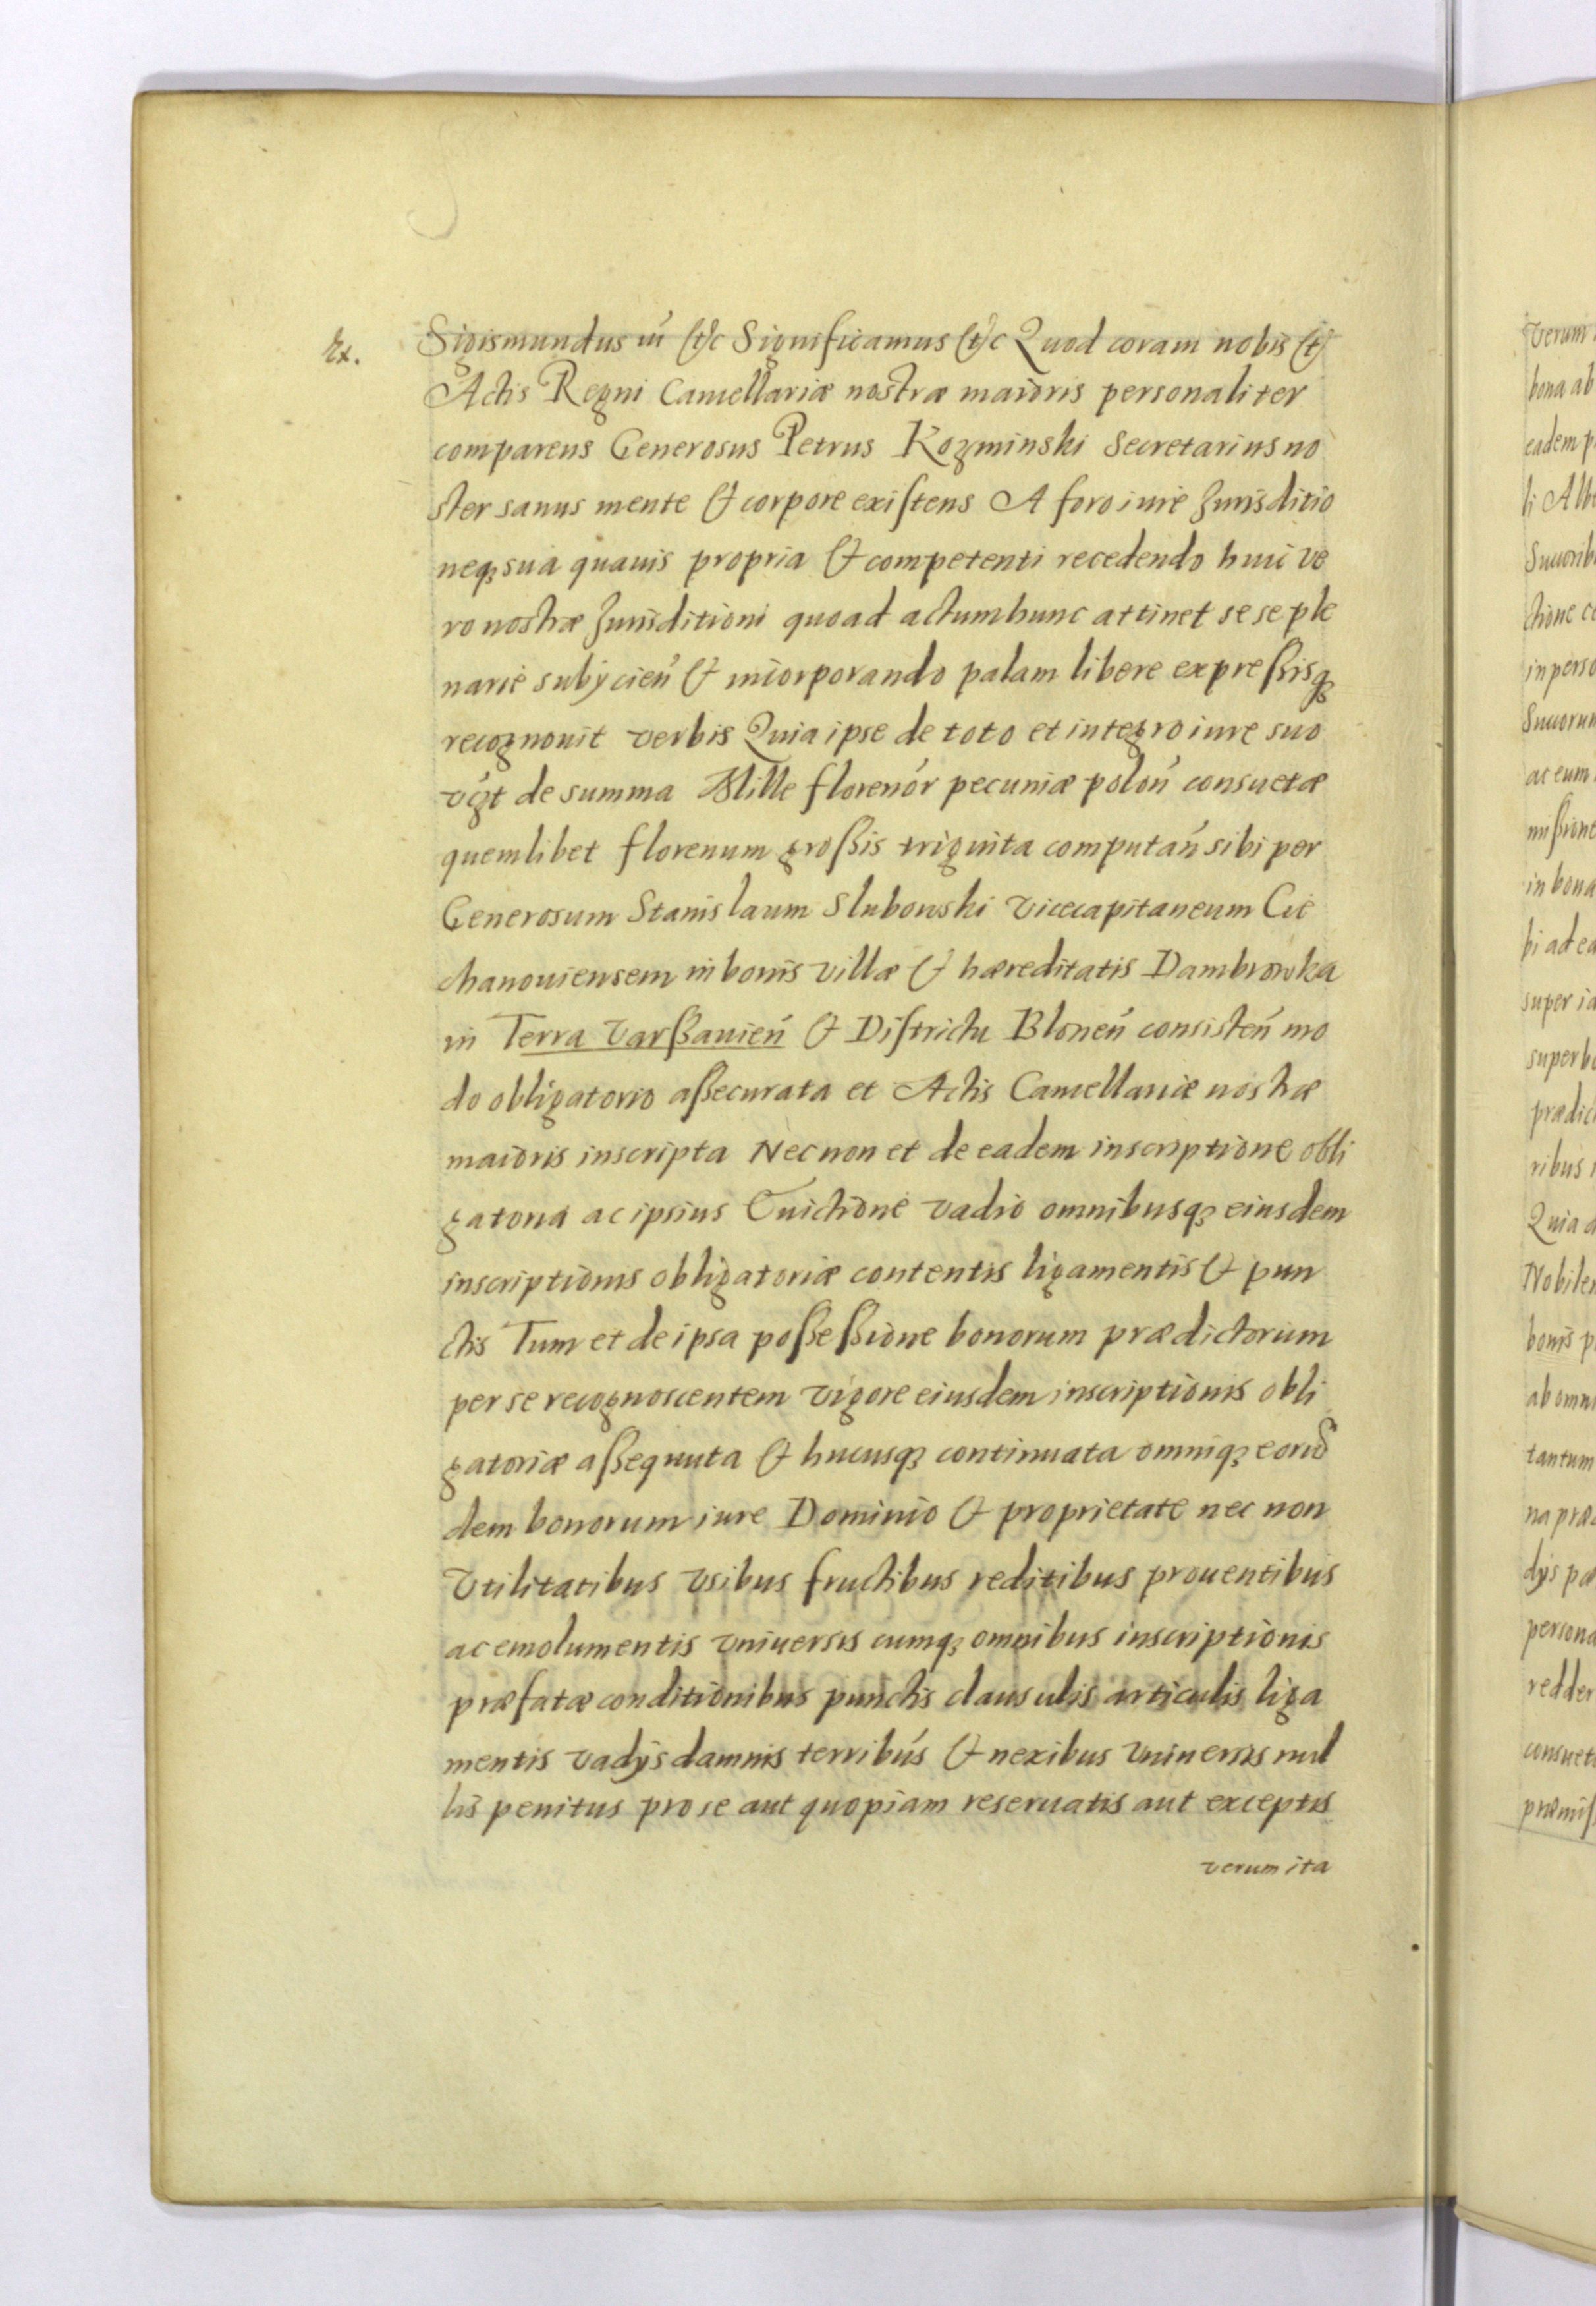 Ex. Sigismundus iii &c Significamus &c Quod coram nobis &
Actis Regni Cancellariæ nostræ maioris personaliter
comparens Generosus Petrus Kozminski Secretarius no
ster sanus mente & corpore existens A foro iure Jurisditio
neq; sua quauis propria & competenti recedendo huic ve
ro nostræ Jurisditioni quoad actum hunc attinet se se ple
narie subÿcień & incorporando palam libere expressisq;
recognouit verbis Quia ipse de toto et integro iure suo
vczt de summa Mille florenór pecuniæ polonń consuetæ
quemlibet florenum grossis triginta computań sibi per
Generosum Stanislaum Slubowski Vicecapitaneum Cie
chanouiensem in bonis villæ & hæreditatis Dambrowka
in Terra Varssauień & Districtu Bloneń consisteń mo
do obligatorio assecurata et Actis Cancellariæ nostræ
maioris inscripta Nec non et de eadem inscriptione obli
gatoria ac ipsius Euictione vadio omnibusq; eiusdem
inscriptionis obligatoriæ contentis ligamentis & pun
ctis Tum et de ipsa possessione bonorum prædictorum
per se recognoscentem vigore eiusdem inscriptionis obli
gatoriæ assequuta & hucusq; continuata omniq; eorũ
dem bonorum iure Dominio & proprietate nec non
Vtilitatibus vsibus fructibus reditibus prouentibus
ac emolumentis vniuersis cumq; omnibus inscriptionis
præfatæ conditionibus punctis clausulis articulis liga
mentis vadÿs damnis terribús & nexibus vniuersis nul
lis penitus pro se aut quopiam reseruatis aut exceptis
verum ita